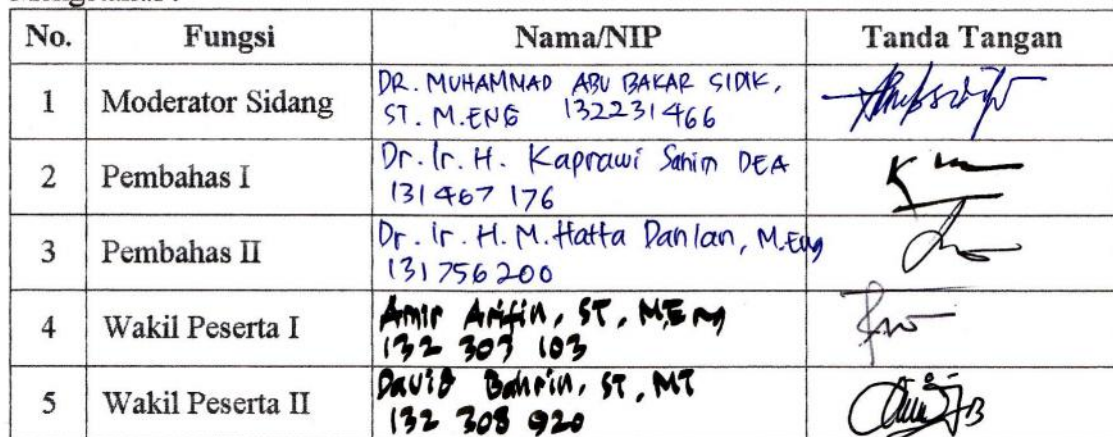 No. Fungsi Nama/NIP Tanda Tangan
1 Moderator Sidang DR. MUHAMMAD ABU BAKAR SIDIK,
ST. M.ENG 132231466
2 Pembahas I Dr. Ir. H. Kaprawi Sahim DEA
131467 176
3 Pembahas II Dr. Ir. H. M. Hatta Dahlan, M.Eng
131756200
4 Wakil Peserta I Amir Arifin, ST, MEng
132 303 103
5 Wakil Peserta II David Bahrin, ST, MT
132 308 920